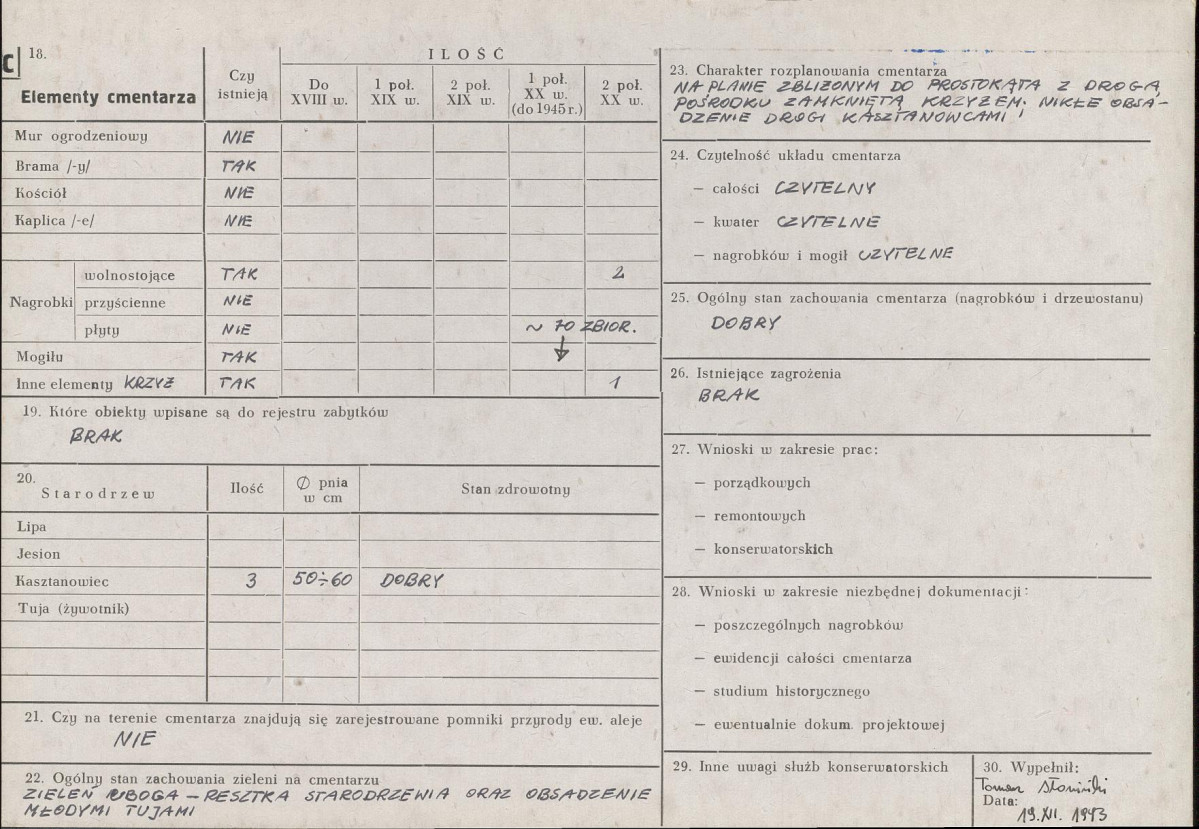 C
18.
Elementy cmentarza
Czy istnieją
ILOŚĆ
Do XVIII w.
1 poł. XIX w.
2 poł. XIX w.
1 poł. XX w. (do 1945 r.)
2 poł. XX w.
Mur ogrodzeniowy NIE
Brama /-y/ TAK
Kościół NIE
Kaplica /-e/ NIE
Nagrobki
wolnostojące TAK 2
przyścienne NIE
płyty NIE ~ 70 ZBIOR.
Mogiłu TAK ↓
Inne elementy KRZYŻ TAK 1
19. Które obiekty wpisane są do rejestru zabytków
BRAK
20.
Starodrzew
Ilość
∅ pnia w cm
Stan zdrowotny
Lipa
Jesion
Kasztanowiec 3 50÷60 DOBRY
Tuja (żywotnik)
21. Czy na terenie cmentarza znajdują się zarejestrowane pomniki przyrody ew. aleje
NIE
22. Ogólny stan zachowania zieleni na cmentarzu
ZIELEŃ UBOGA – RESZTKA STARODRZEWIA ORAZ OBSADZENIE
MŁODYMI TUJAMI
23. Charakter rozplanowania cmentarza
NA PLANIE ZBLIŻONYM DO PROSTOKĄTA Z DROGĄ
POŚRODKU ZAMKNIĘTĄ KRZYŻEM. NIKŁE OBSA-
DZENIE DROGI KASZTANOWCAMI
24. Czytelność układu cmentarza
— całości CZYTELNY
— kwater CZYTELNE
— nagrobków i mogił CZYTELNE
25. Ogólny stan zachowania cmentarza (nagrobków i drzewostanu)
DOBRY
26. Istniejące zagrożenia
BRAK
27. Wnioski w zakresie prac:
— porządkowych
— remontowych
— konserwatorskich
28. Wnioski w zakresie niezbędnej dokumentacji:
— poszczególnych nagrobków
— ewidencji całości cmentarza
— studium historycznego
— ewentualnie dokum. projektowej
29. Inne uwagi służb konserwatorskich
30. Wypełnił:
Tomasz
Data:
19.XII. 1993